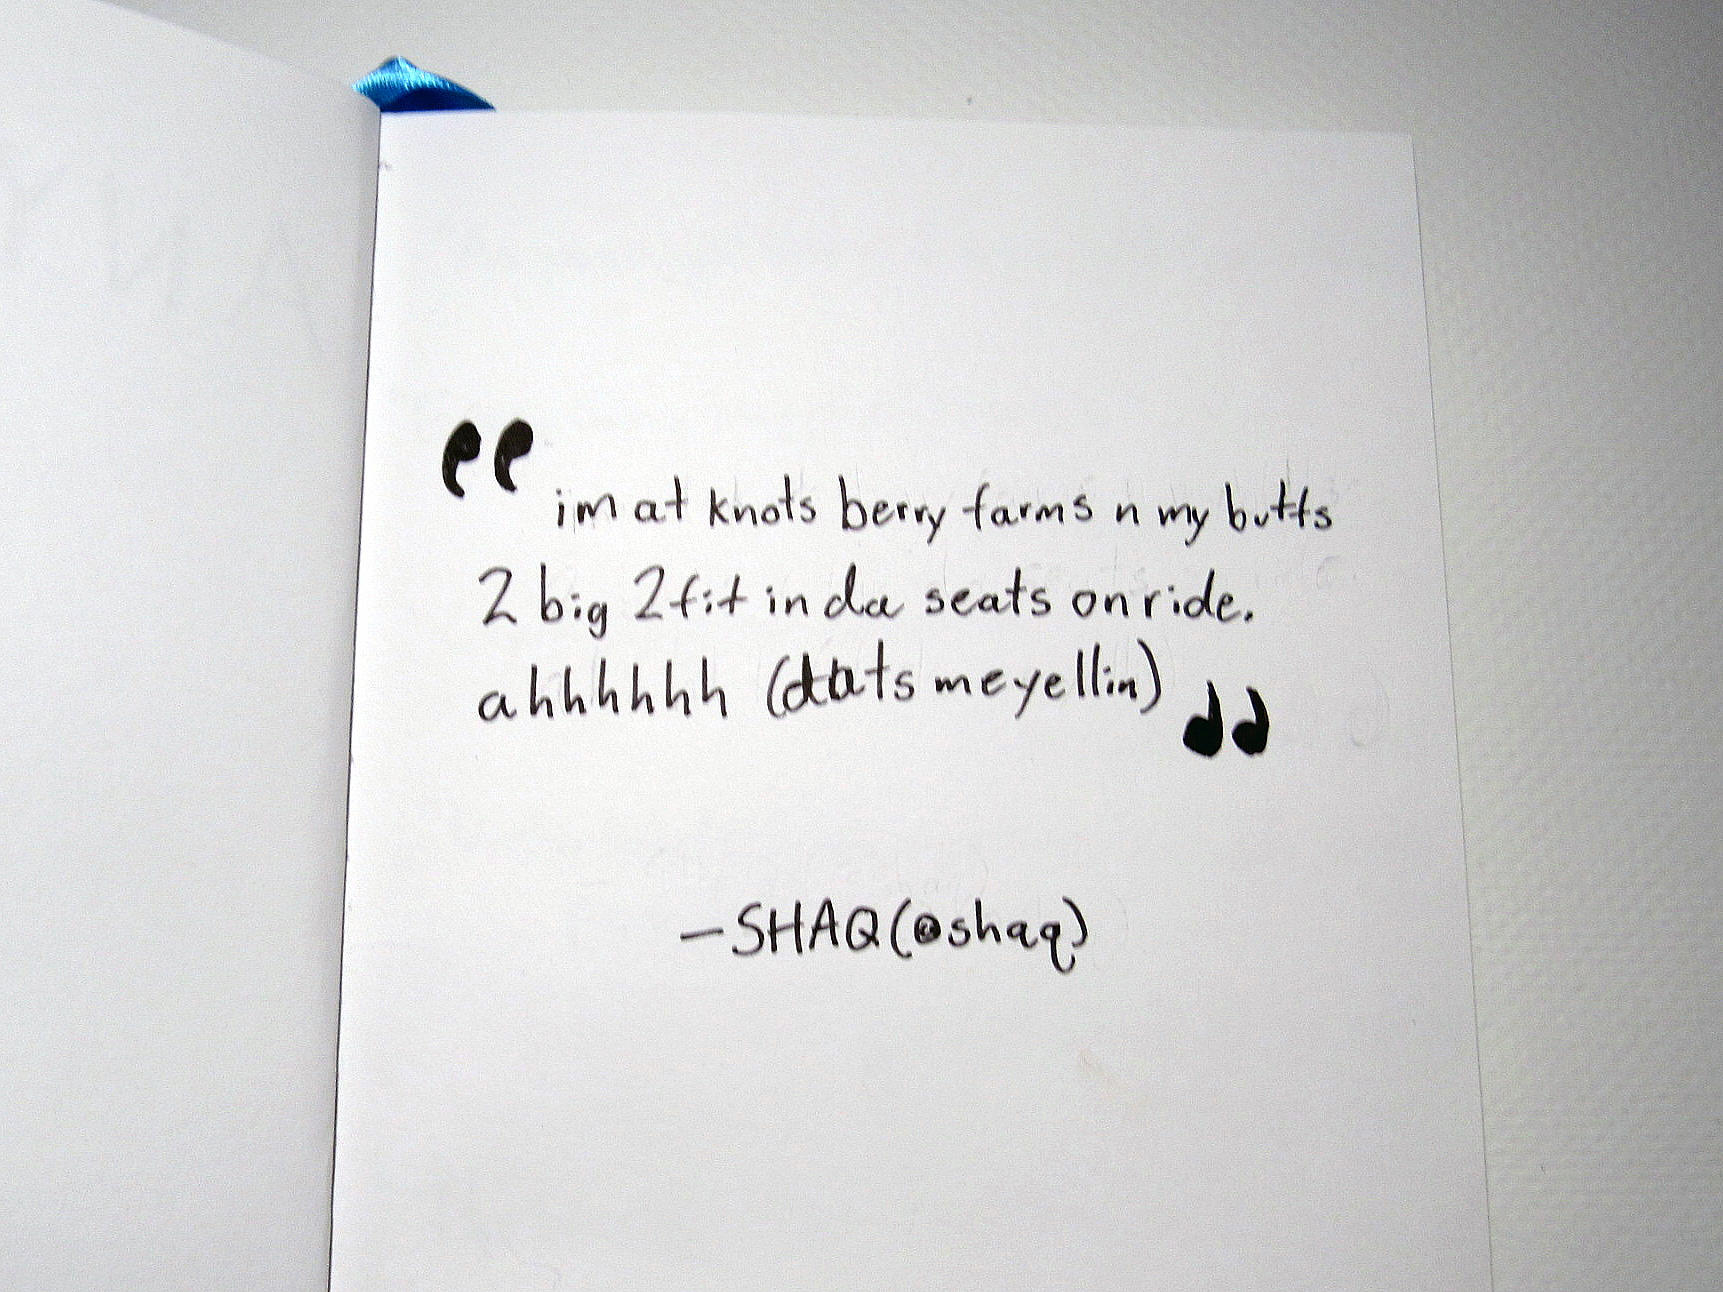 “im at knots berry farms n my butts
2 big 2 fit in da seats on ride.
ahhhhhh (dats me yellin)”
—SHAQ (@shaq)